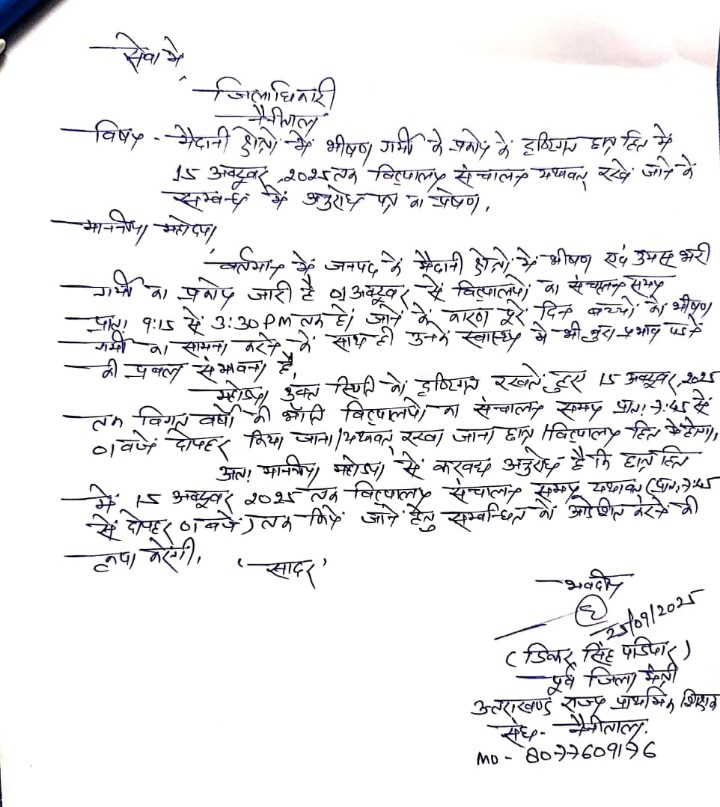 सेवा में,
जिलाधिकारी
नैनीताल
विषय - मैदानी क्षेत्रों में भीषण गर्मी के प्रकोप के दृष्टिगत छात्र हित में
15 अक्टूबर, 2025 तक विद्यालय संचालन यथावत् रखे जाने के
सम्बन्ध में अनुरोध पत्र का प्रेषण,
माननीया महोदया,
वर्तमान में जनपद के मैदानी क्षेत्रों में भीषण एवं उमस भरी
गर्मी का प्रकोप जारी है 01 अक्टूबर से विद्यालयों का संचालन समय
प्रातः 9:15 से 3:30 PM तक हो जाने के कारण पूरे दिन बच्चों को भीषण
गर्मी का सामना करने के साथ ही उनके स्वास्थ्य में भी बुरा प्रभाव पड़ने
की प्रबल संभावना है,
महोदया उक्त स्थिति को दृष्टिगत रखते हुए 15 अक्टूबर, 2025
तक विगत वर्षों की भाँति विद्यालयों का संचालन समय प्रातः 7:45 से
01 बजे दोपहर किया जाना/यथावत् रखा जाना छात्र/विद्यालय हित में होगा,
अतः माननीया महोदया से करबद्ध अनुरोध है कि छात्र हित
में 15 अक्टूबर 2025 तक विद्यालय संचालन समय यथावत (प्रातः 7:45
से दोपहर 01 बजे) तक किये जाने हेतु सम्बन्धित को आदेशित करने की
कृपा करेंगी,
'सादर'
भवदीय
25/09/2025
(डिकर सिंह पडियार)
पूर्व जिला मंत्री
उत्तराखण्ड राज्य प्राथमिक शिक्षक
संघ - नैनीताल.
MO - 8077609176